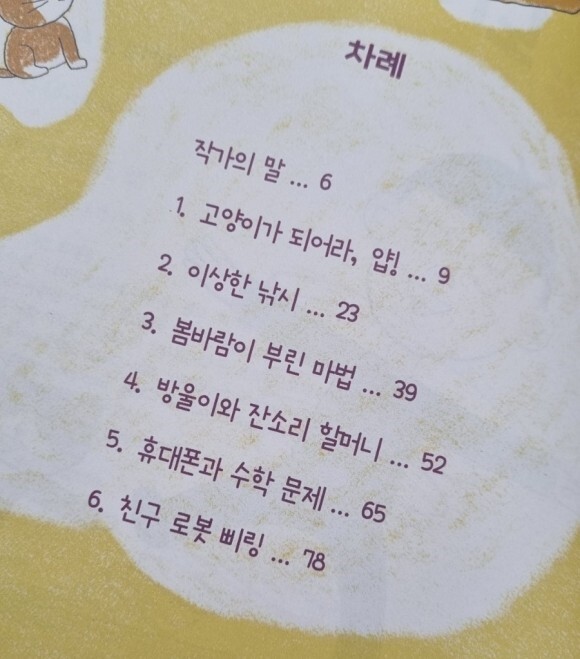 차례
작가의 말 ... 6
1. 고양이가 되어라, 얍! ... 9
2. 이상한 낚시 ... 23
3. 봄바람이 부린 마법 ... 39
4. 방울이와 잔소리 할머니 ... 52
5. 휴대폰과 수학 문제 ... 65
6. 친구 로봇 삐링 ... 78